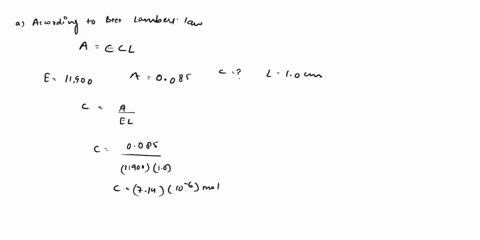 a) According to Beer Lambert law
A = ECL
E = 11,900 A = 0.085 C = ? L = 1.0 cm
C = A / EL
C = 0.085 / (11900) (1.0)
C = (7.14) (10⁻⁶) mol